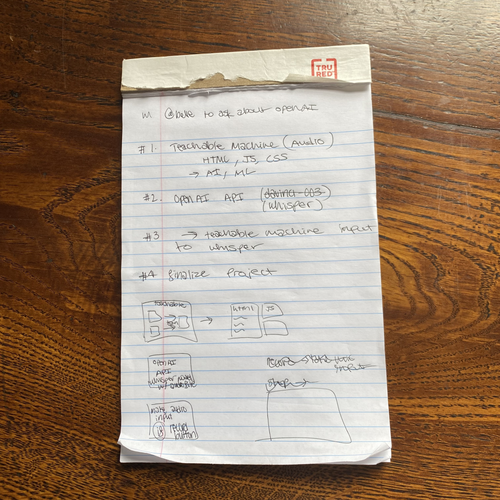 TRU
RED
to ask about openAI
#1. Teachable Machine (Audio)
HTML, JS, CSS
→ AI, ML
#2. OpenAI API (davinci-003)
(whisper)
#3 → teachable machine input
to whisper
#4 finalize project
teachable
→
html JS
openAI
API
whisper
make audio
input
record
button